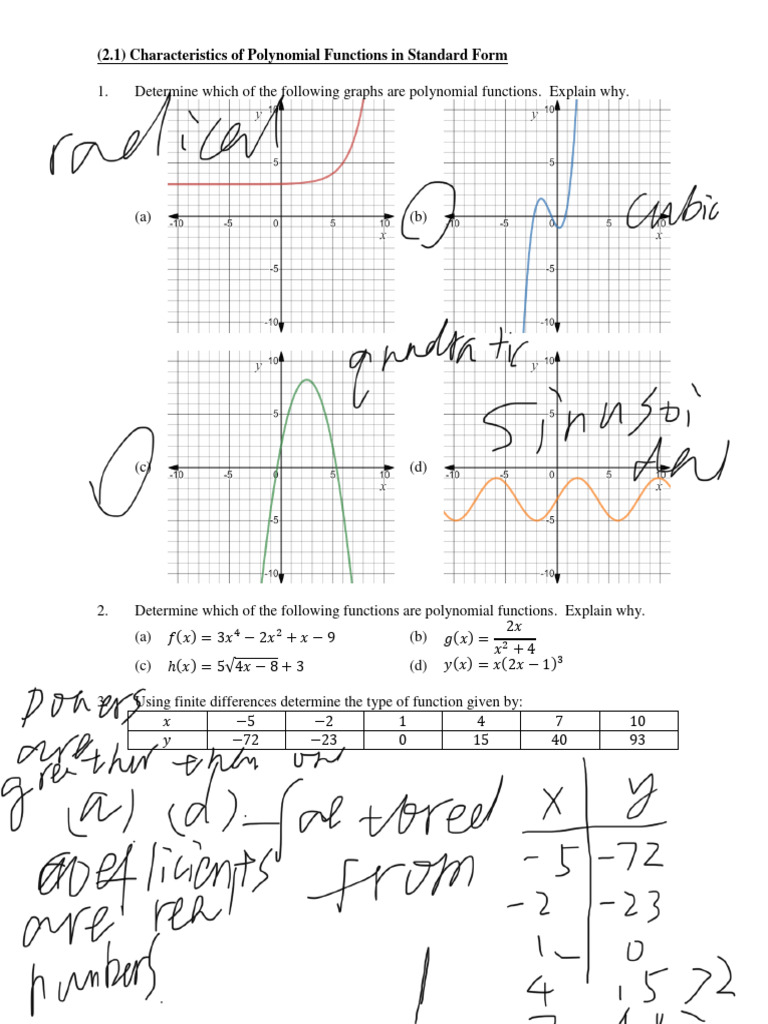 (2.1) Characteristics of Polynomial Functions in Standard Form
1. Determine which of the following graphs are polynomial functions. Explain why.
radical
y 10
5
(a) -10 -5 0 5 10
x
-5
-10
y 10
5
(b) 10 -5 0 5 10
x
-5
-10
cubic
quadratic
y 10
5
(c) -10 -5 0 5 10
x
-5
-10
y 10
5
(d) -10 -5 0 5 10
x
-5
-10
sinusoi
dal
2. Determine which of the following functions are polynomial functions. Explain why.
(a) f(x) = 3x⁴ − 2x² + x − 9 (b) g(x) = 2x / (x² + 4)
(c) h(x) = 5√(4x − 8) + 3 (d) y(x) = x(2x − 1)³
Using finite differences determine the type of function given by:
x −5 −2 1 4 7 10
y −72 −23 0 15 40 93
powers
are
greather than one
(a) (d) factored
coefficients from
are real
numbers.
x y
-5 -72
-2 -23
1 0
4 15 72